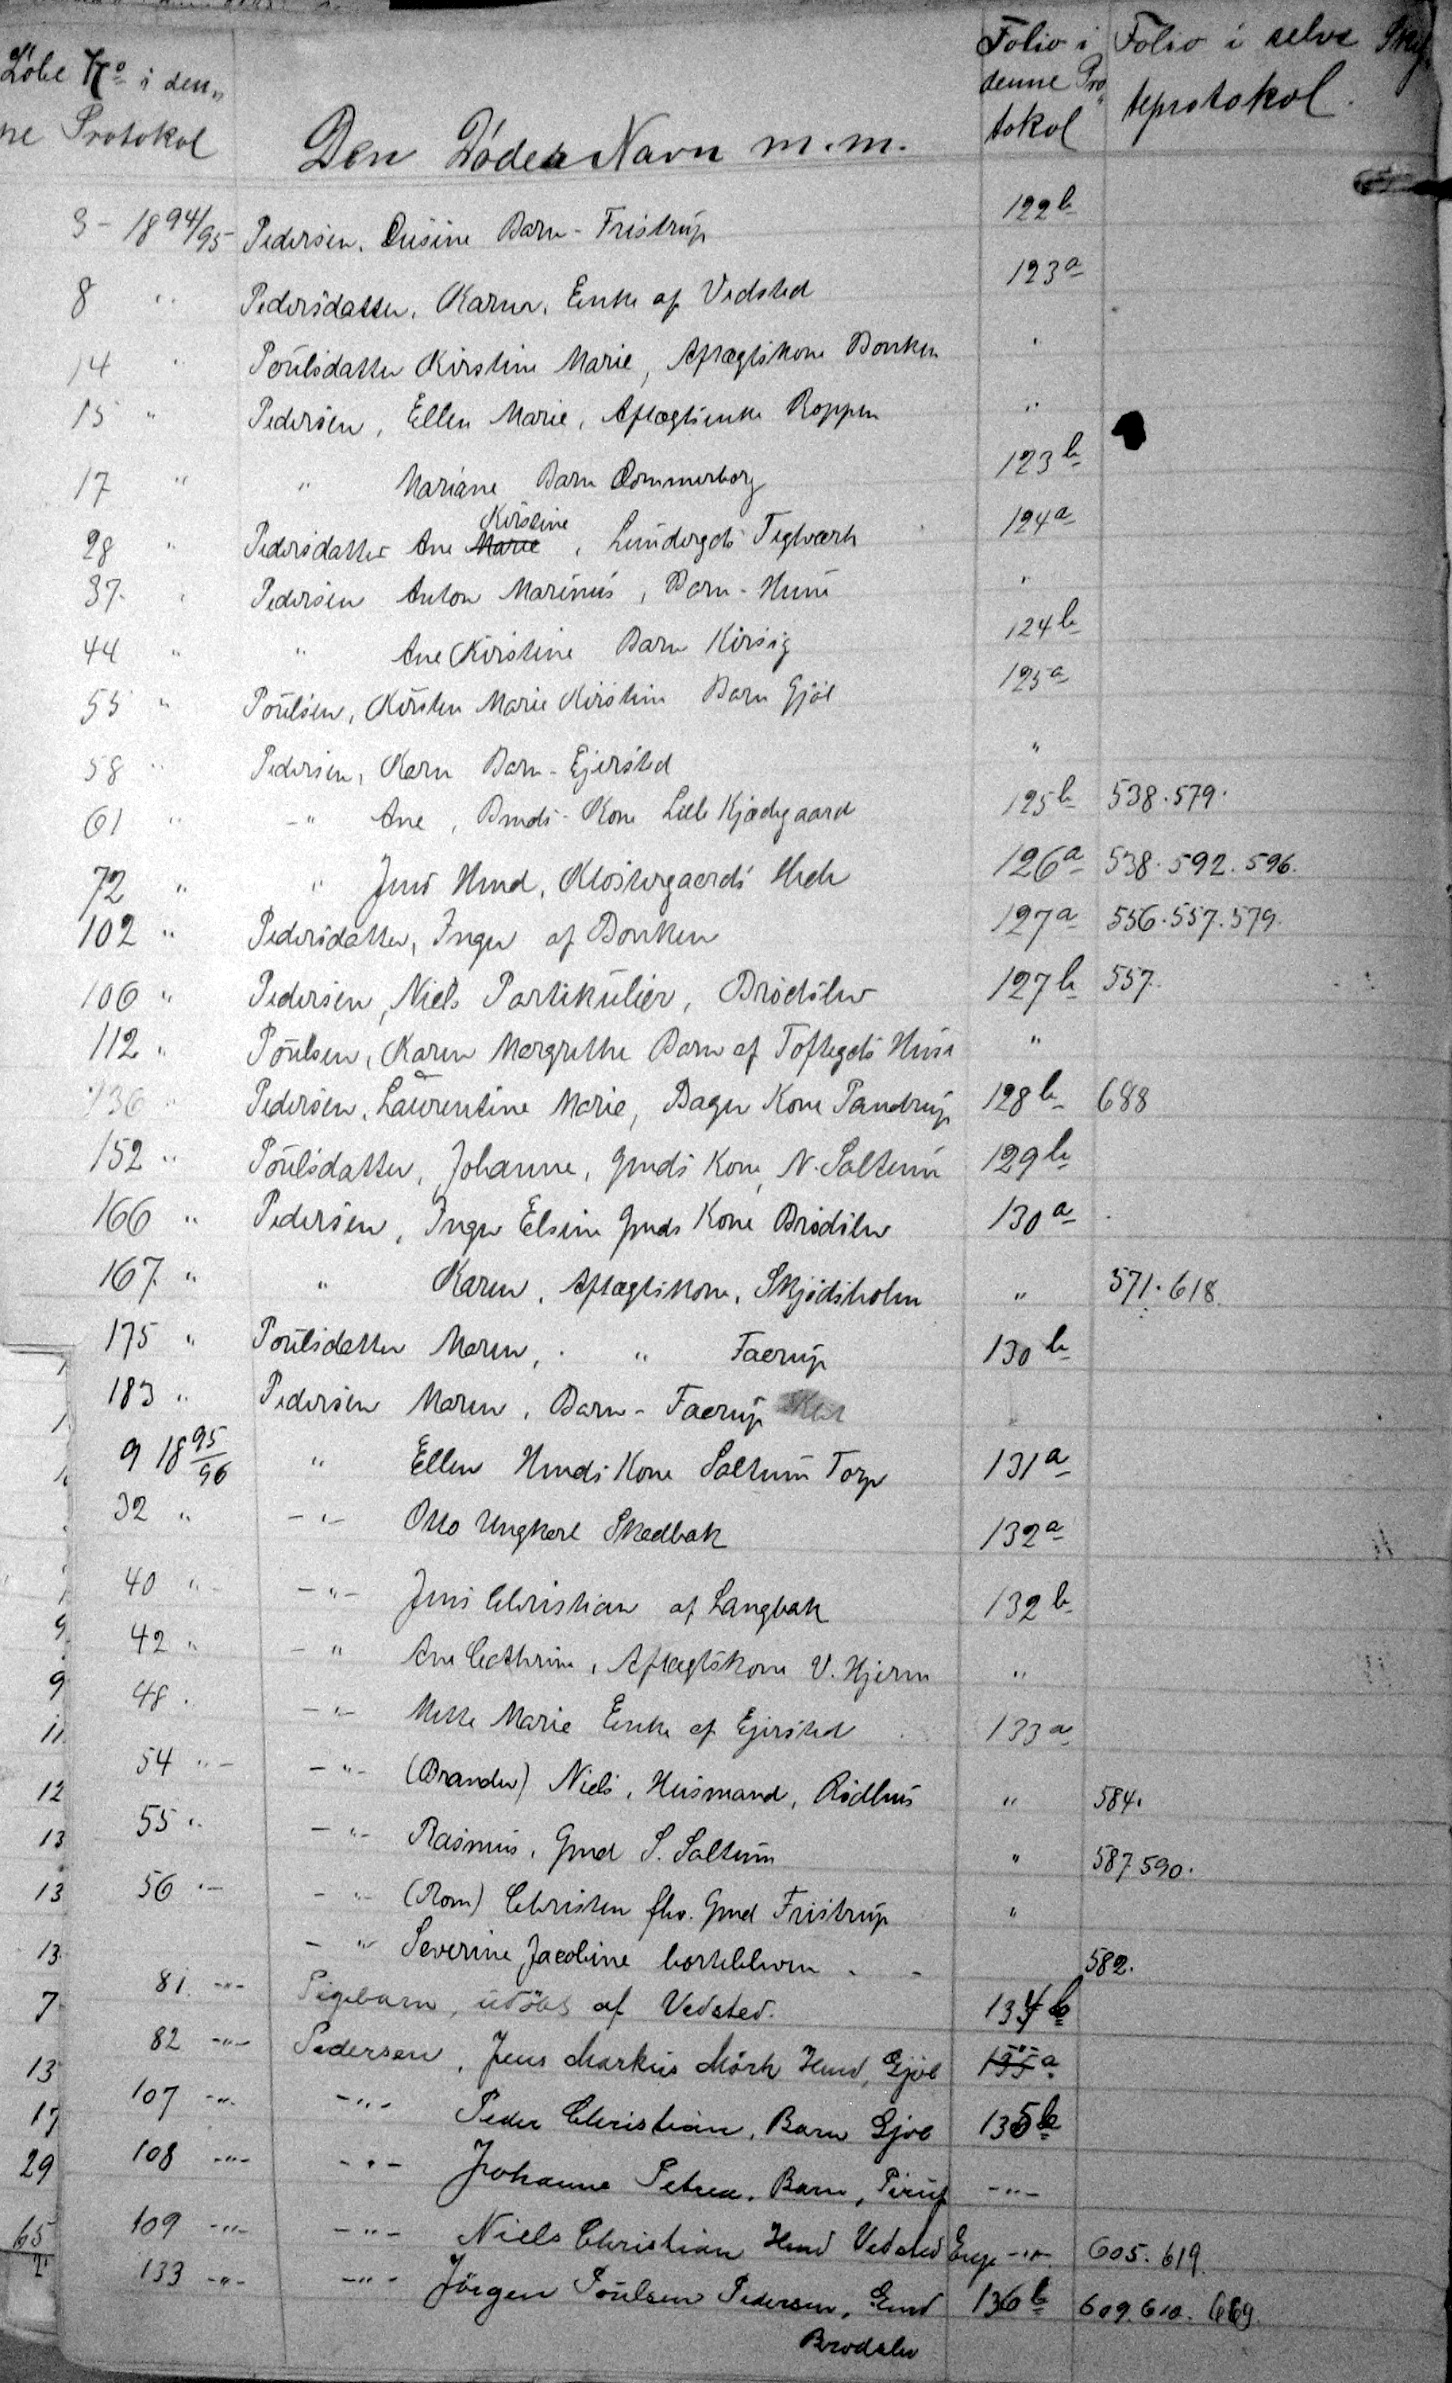 Löbe No i den„ Folio i Folio i selve Skif
ne Protokol Den Dödes Navn m.m. denne Pro„ teprotokol.
tokol
3 - 1894/95 Pedersen, Barn - Fristrup 122b
8 " Pedersdatter, Karen, Enke af Vedsted 123a
14 " Poulsdatter Kirstine Marie, Aftægtskone Bonken "
15 " Pedersen, Ellen Marie, Aftægtsenke Roppen "
17 " " Mariane Barn 123b
Kirstine
28 " Pedersdatter Ane Marie, Lundergds Teglværk 124a
37 " Pedersen Anton Marinus, Barn - Hune "
44 " " Ane Kirstine Barn Kirsig 124b
55 " Poulsen, Kirsten Marie Kirstine Barn Gjöl 125a
58 " Pedersen, Karen Barn - Ejersted "
61 " -" Ane, Bmds - Kone Lille Kjædegaard 125b 538. 579.
72 " " Jens Hmd, Klostergaards Hede 126a 538. 592. 596.
102 " Pedersdatter, Inger af Bonken 127a 556. 557. 579.
106 " Pedersen, Niels Partikulier, Brödslev 127b 557.
112 " Poulsen, Karen Margrethe Barn af Toftegds Huse "
136 " Pedersen, Laurentine Marie, Bager Kone Pandrup 128b 688
152 " Poulsdatter, Johanne, Gmds Kone, N. Saltum 129b
166 " Pedersen, Inger Elsine Gmds Kone Brödslev 130a
167 " " Karen, Aftægtskone, Skjödsholm " 571. 618.
175 " Poulsdatter Maren, " Faarup 130b
183 " Pedersen Maren, Barn - Faarup
9 1895/96 " Ellen Hmds Kone Saltum Torp 131a
32 " -"- Otto Ungkarl Skedbak 132a
40 " -"- Jens Christian af Langbak 132b
42 " -" Ane Cathrine, Aftægtskone V. Hjerm "
48 . -"- Mette Marie Enke af Ejersted 133a
54 " -"- (Brander) Niels, Husmand, Rödhus " 584.
55 " -"- Rasmus, Gmd S. Saltum " 587. 590.
56 " -"- (Rom) Christen fhv. Gmd Fristrup "
-" Severine Jacobine - - 582.
81 -"- Pigebarn, udöbt af Vedsted. 134b
82 -"- Pedersen, Jens Markus Mörk Hmd, Gjöl 135a
107 -"- -"- Peder Christian, Barn Gjöl 135b
108 -"- -"- Johanne Petrea, Barn, Pirup -"-
109 -"- -"- Niels Christian Hmd Vedsted Enge -"- 605. 619.
133 -"- -"- Jörgen Poulsen Pedersen, Gmd 136b 609. 610. 669.
Brodslev
9
9
11
12
13
13
13
7
13
17
29
65